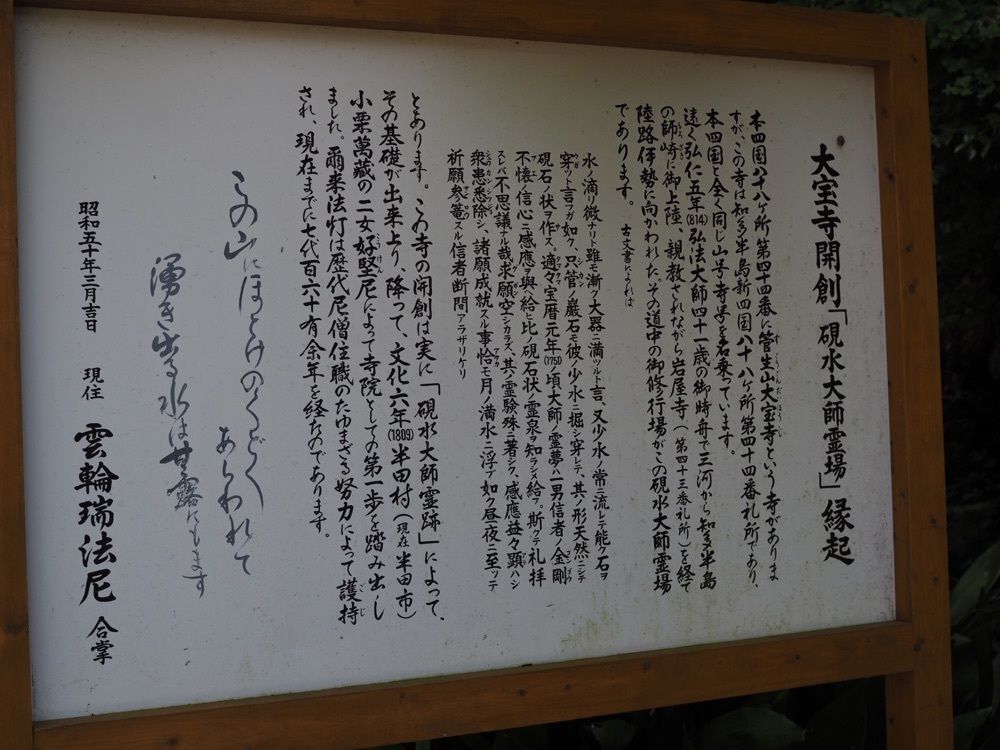 大宝寺開創「硯水大師霊場」縁起
本四国八十八ヶ所第四十四番に管生山大宝寺という寺がありま
すが、この寺は知多半島新四国八十八ヶ所第四十四番札所であり、
本四国と全く同じ山号寺号を名乗っています。
遠く弘仁五年(814)弘法大師四十一歳の御時舟で三河から知多半島
の師崎に御上陸、親教されながら岩屋寺(第四十三番札所)を経て
陸路伊勢に向かわれた。その道中の御修行場がこの硯水大師霊場
であります。
古文書によれは
水ノ滴リ微ナリト雖モ漸ク大器ニ満ツルト言、又少水ノ常ニ流レテ能ク石ヲ
穿ツト言フガ如ク、只管ノ巖石モ彼ノ少水ニ掘ラ穿レテ其ノ形天然ニシテ
硯石ノ状ヲ作ス、適々宝暦元年(1751)ノ頃大師ノ霊夢ハ一男信者ノ金剛
不懐ノ信心ニ感應ヲ與ヘ給ヒ比ノ硯石状ノ霊泉ヲ知ランメ給フ。斯クテ礼拝
スレバ不思議ナル哉求願空シカラズ、其ノ霊験殊ニ著シク感應益々顕ハシ
衆患悉除シ、諸願成就スル事恰モ月ノ満水ニ浮ブ如ク昼夜ニ至ッテ
祈願参篭スル信者断間アラザリケリ
とあります。この寺の開創は実に「硯水大師霊跡」によって、
その基礎が出来上り、降って、文化六年(1809)半田村(現在半田市)
小栗萬藏の二女好堅尼によって寺院としての第一歩を踏み出し
ました。爾来法灯は歴代尼僧住職のたゆまざる努力によって護持
され、現在までに七代百六十有余年を経たのであります。
この山にほとけのくどく
あらわれて
湧き出る水は甘露にもます
昭和五十年三月吉日 現住 雲輪瑞法尼 合掌